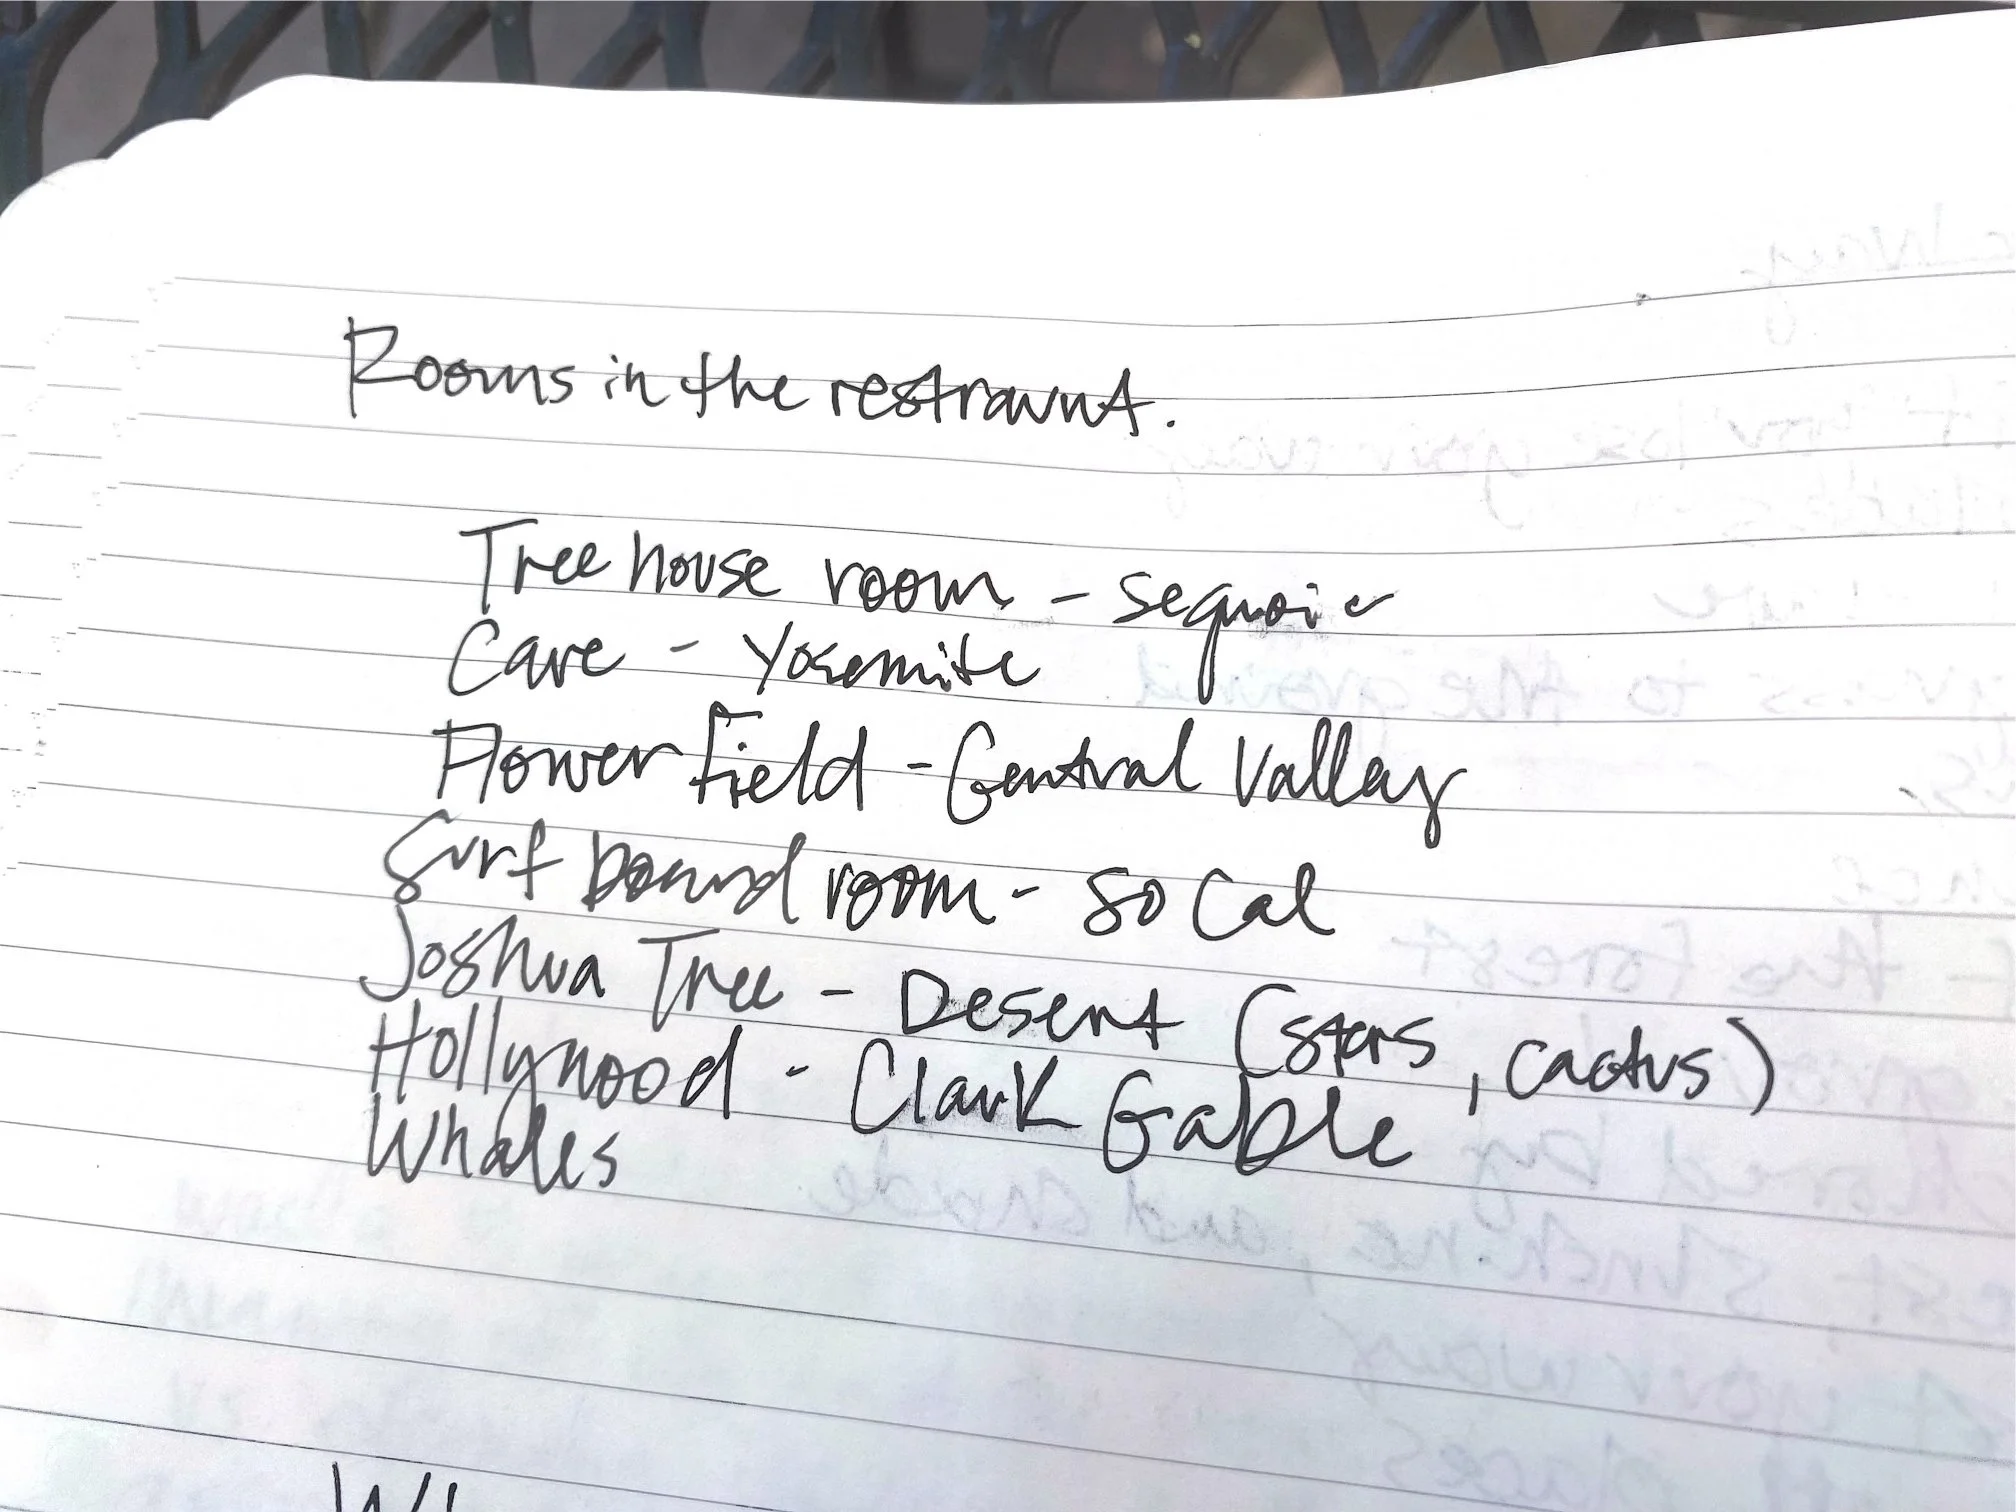 Rooms in the restraunt.
Tree house room - sequoia
Cave - Yosemite
Flower Field - Central Valley
Surf board room - so Cal
Joshua Tree - Desert (stars, cactus)
Hollywood - Clark Gable
Whales